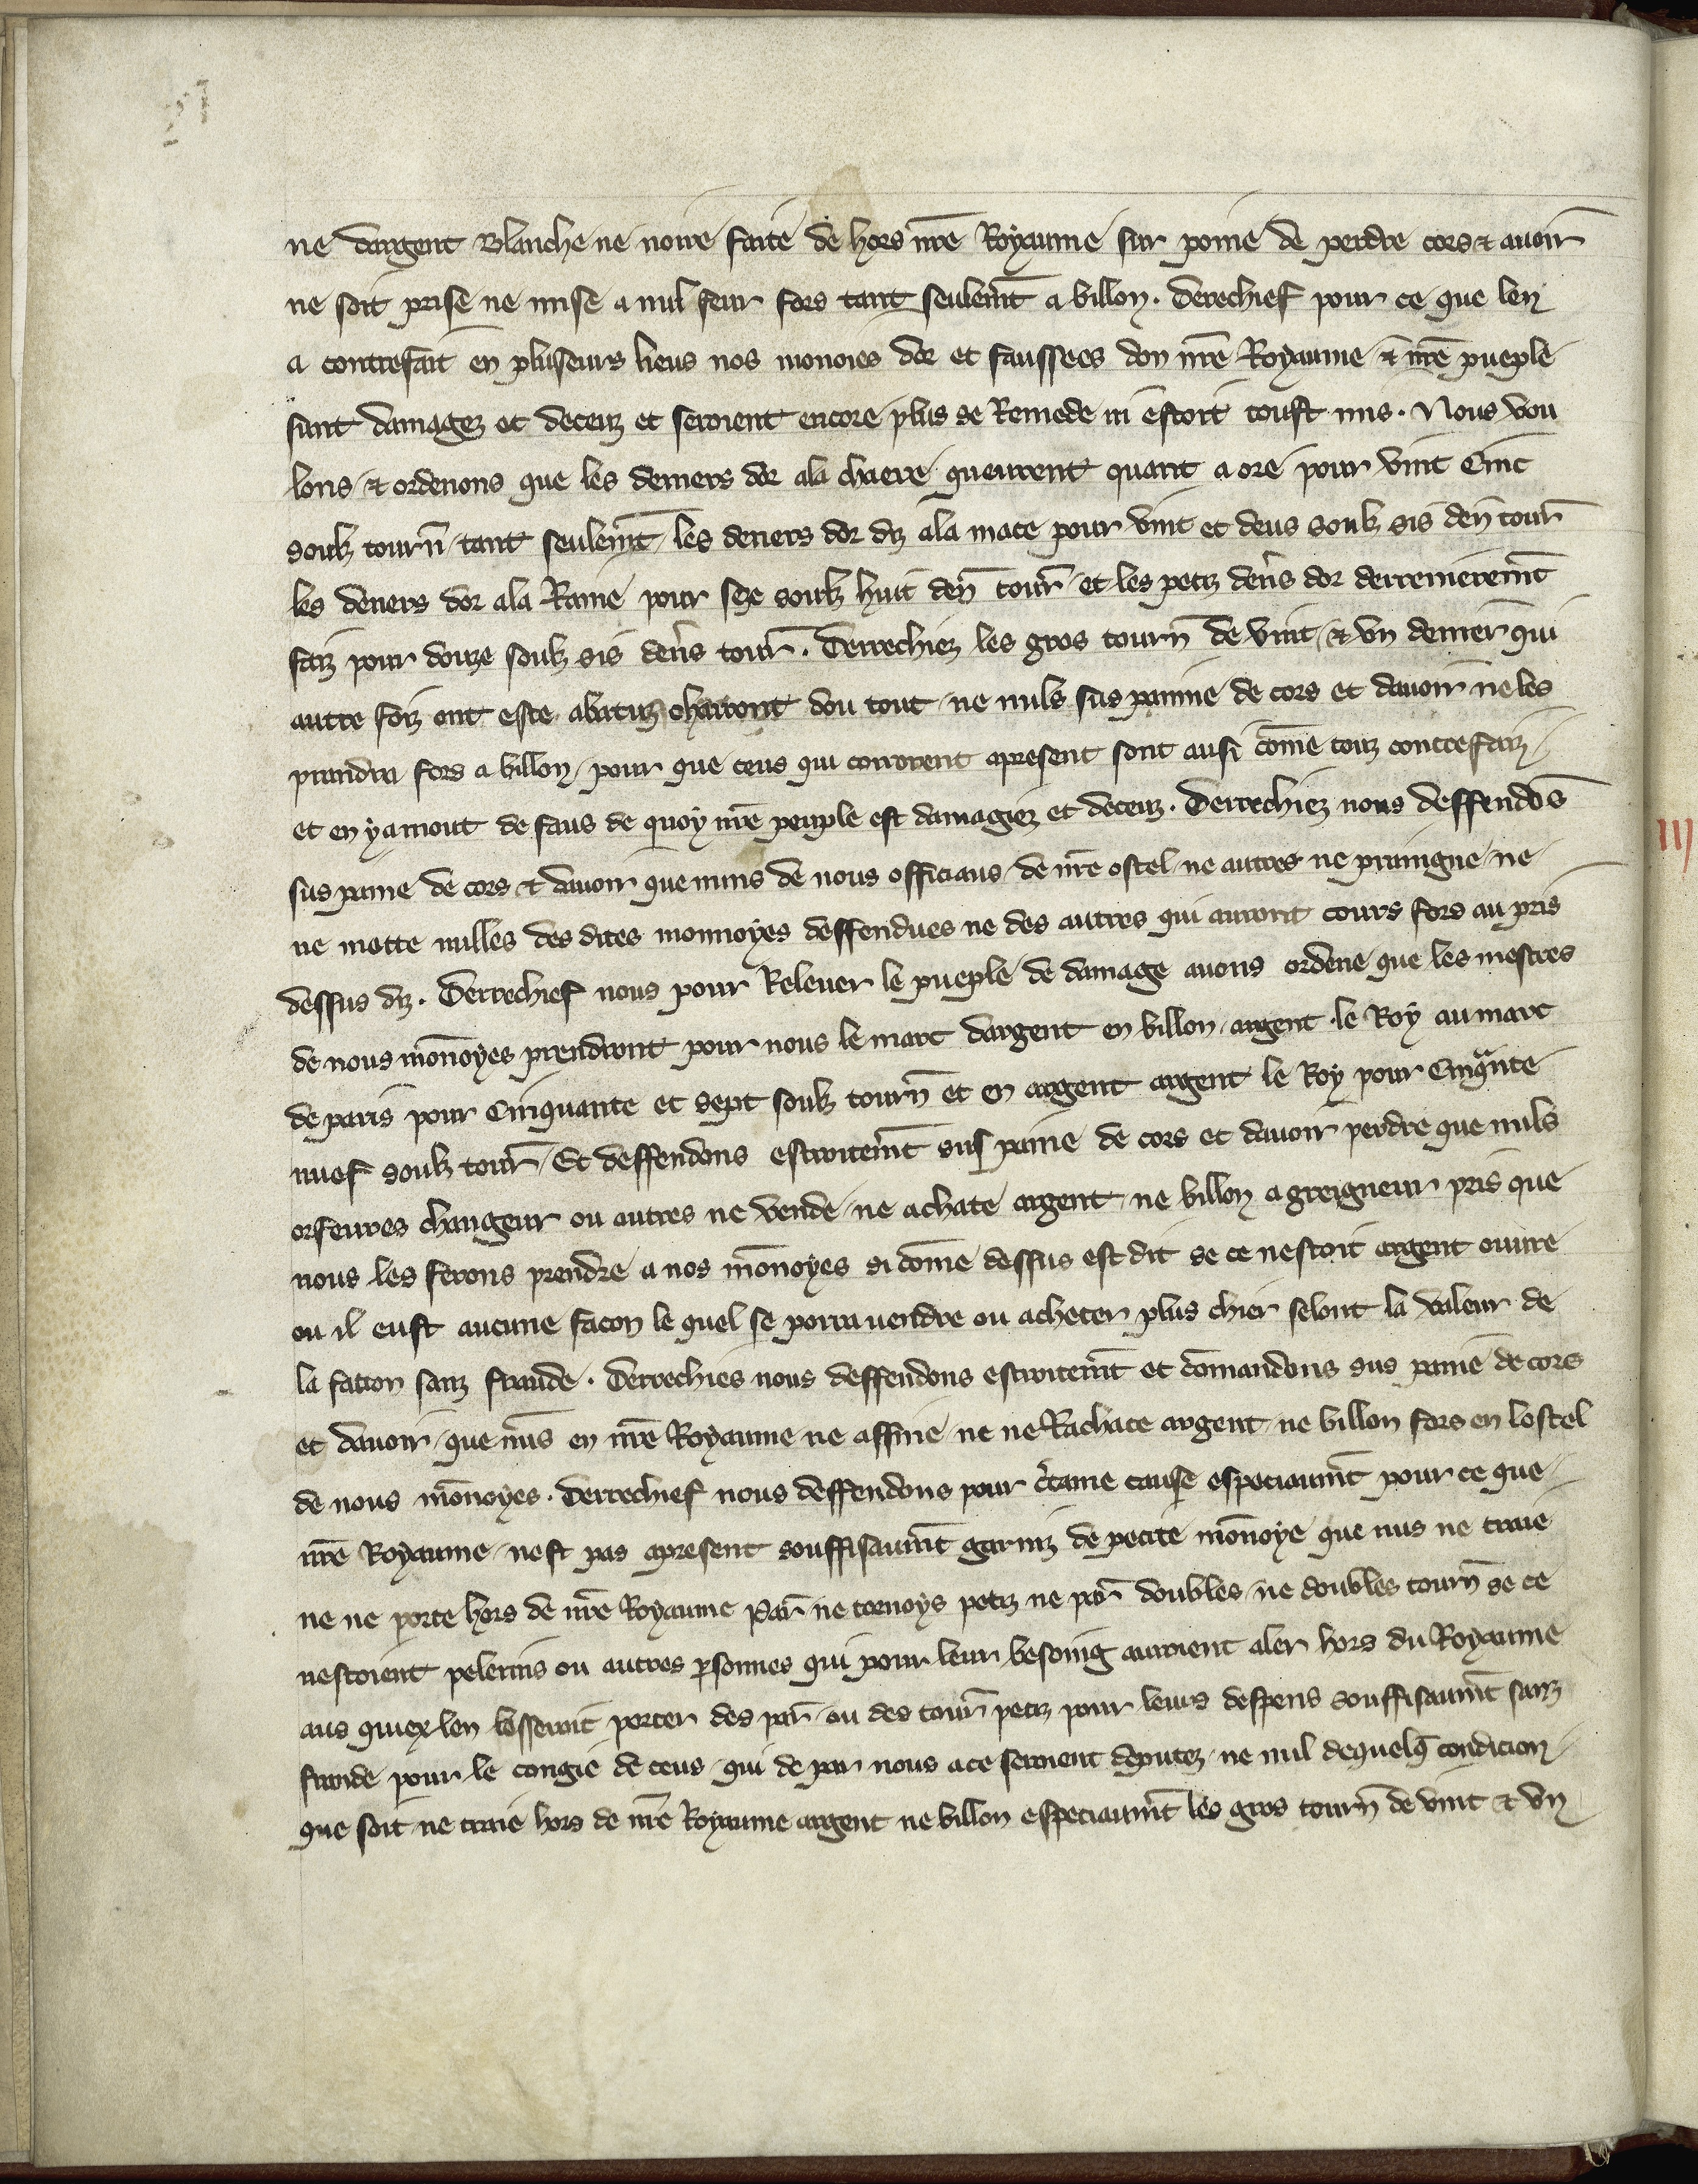 ne dargent Blanche ne noire faite de hors nr̄e Royaume sur poine de perdre cors ⁊ auoir
ne soit prise ne mise a nul feur fors tant seulem̄t a billon. Derechief pour ce que len
a contrefait en pluseurs lieus nos monoies dor et faussees don nr̄e Royaume ⁊ nr̄e pueple
sunt damagez et deceuz et seroient encore plus se Remede ni estoit toust mis. Nous vou
lons ⁊ ordenons que les deniers dor ala chaere queurent quant a ore pour vint Cinc
soulz tourn̄ tant seulem̄t les deners dor diz ala mace pour vint et deus soulz sis den̄ tour̄
les deners dor ala Raine pour seze soulz huit den̄ tour̄ et les petiz den̄s dor derrenierem̄t
faiz pour douze soulz sis den̄s tour̄. Derrechiez les gros tourn̄ de vint ⁊ vn denier qui
autre foiz ont este abatuz charront dou tout ne nuls sus painne de cors et dauoir ne les
prandra fors a billon pour que ceus qui corrorent apresent sont ausi com̄e touz contrefaiz
et en y a mout de faus de quoy nr̄e peuple est damagiez et deceuz. Derrechiez nous deffendōs
sus paine de cors ⁊ dauoir que nuns de nous officiaus de nr̄e ostel ne autres ne praingne ne
ne mette nulles des dites monnoyes deffendues ne des autres qui auront cours fors au pris
dessus diz. Derrechief nous pour Releuer le pueple de damage auons ordene que les mestres
de nous mōnoyes prendront pour nous le marc dargent en billon argent le Roy au marc
de paris pour Cinquante et sept soulz tourn̄ et en argent argent le Roy pour Cinqante
nuef soulz tour̄ Et deffendons estroitem̄t sus paine de cors et dauoir perdre que nuls
orfeures changeur ou autres ne vende ne achate argent ne billon a greigneur pris que
nous les ferons prendre a nos mōnoyes si com̄e dessus est dit se ce nestoit argent ouure
ou il eust aucune facon le quel se porra uendre ou acheter plus chier selont la valeur de
la facion sanz fraude. Derrechies nous deffendons estroitem̄t et comandons sus paine de cors
et dauoir que nūs en nr̄e Royaume ne affine ne ne Rachate argent ne billon fors en lostel
de nous mōnoyes. Derrechief nous deffendons pour c̄taine cause especiaum̄t pour ce que
nr̄e Royaume nest pas apresent souffisaum̄t garniz de petite mōnoye que nus ne traie
ne ne porte hors de nr̄e Royaume Par̄ ne tornoys petiz ne par̄ doubles ne doubles tourn̄ se ce
nestoient pelerins ou autres p̄sonnes qui pour leur besoing auroient aler hors du Royaume
aus quiex len lesseroit porter des par̄ ou des tourn̄ petiz pour leurs despens souffisaum̄t sanz
fraude pour le congie de ceus qui de par nous a ce seroient deputez ne nul de quelq̄ condicion
que soit ne traie hors de nr̄e Royaume argent ne billon especiaum̄t les gros tourn̄ de vint ⁊ vn